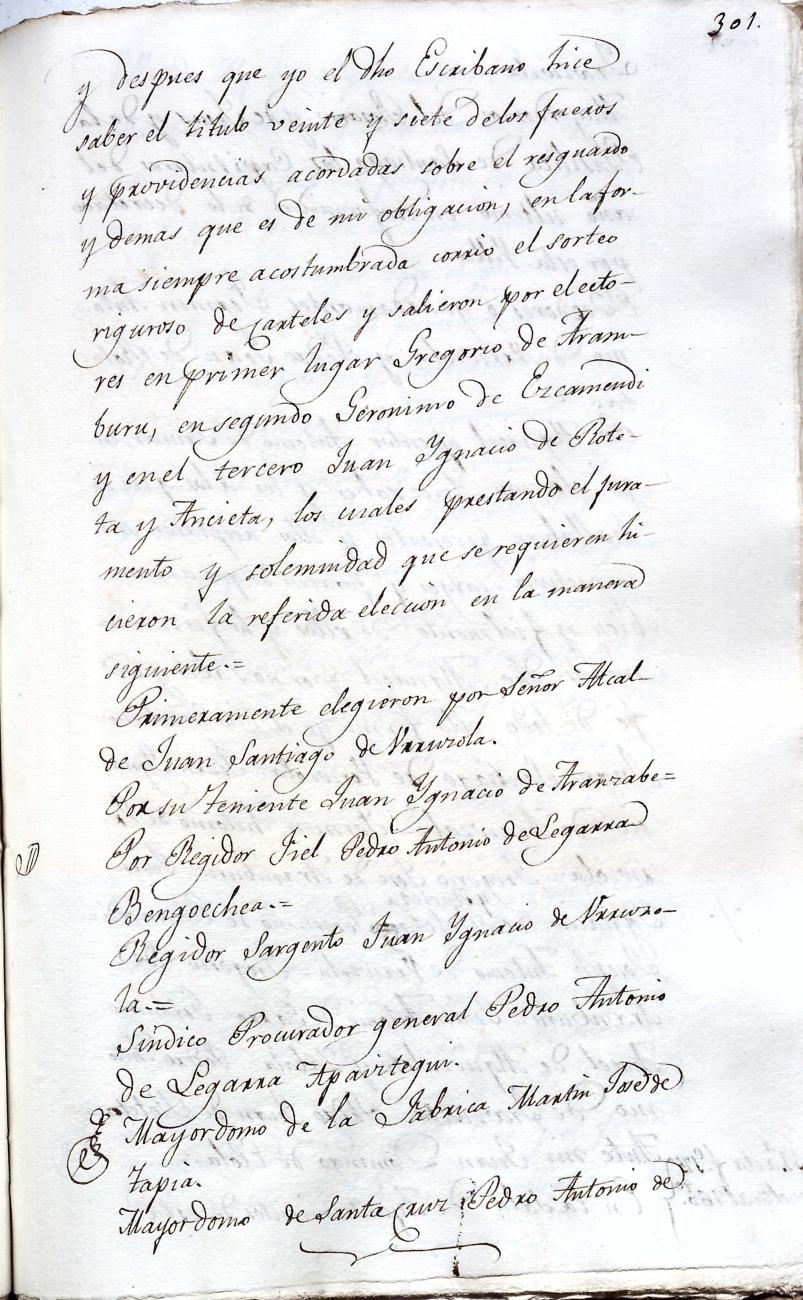 301.
y despues que yo el dho Escribano hice
saber el titulo veinte y siete delos fueros
y providencias acordadas sobre el resguardo
y demas que es de mi obligacion, en la for-
ma siempre acostumbrada corrio el sorteo
riguroso de carteles y salieron por electo-
res en primer lugar Gregorio de Aram-
buru, en segundo Geronimo de Ezcamendi
y en el tercero Juan Ygnacio de Rote-
ta y Ancieta, los cuales prestando el jura-
mento y solemnidad que se requieren hi-
cieron la referida eleccion en la manera
siguiente.=
Primeramente elegieron por Señor Alcal-
de Juan Santiago de Urruzola.
Por su Teniente Juan Ygnacio de Aranzabe=
Por Regidor Fiel Pedro Antonio de Legarra
Bengoechea.=
Regidor Sargento Juan Ygnacio de Urruzo-
la.=
Sindico Procurador general Pedro Antonio
de Legarra Apaiztegui.
Mayordomo de la Fabrica Martin José de
Tapia.
Mayordomo de Santa Cruz Pedro Antonio de